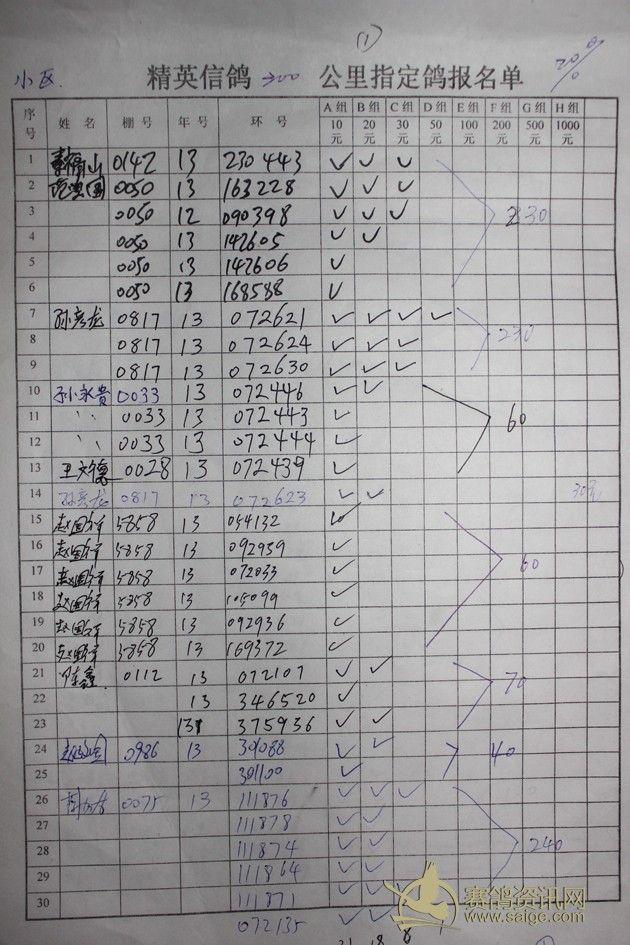 (1)
小区
精英信鸽 300 公里指定鸽报名单
20%
序号 姓名 棚号 年号 环号 A组 B组 C组 D组 E组 F组 G组 H组
10元 20元 30元 50元 100元 200元 500元 1000元
1 李福山 0142 13 230443 ✓ ✓ ✓
2 0050 13 163228 ✓ ✓ ✓
3 0050 12 090398 ✓ ✓ ✓ 230
4 0050 13 142605 ✓ ✓
5 0050 13 142606 ✓
6 0050 13 168588 ✓
7 孙彦龙 0817 13 072621 ✓ ✓ ✓ ✓ 230
8 0817 13 072624 ✓ ✓ ✓
9 0817 13 072630 ✓ ✓ ✓
10 孙永贵 0033 13 072446 ✓ ✓
11 〃 0033 13 072443 ✓ 60
12 〃 0033 13 072444 ✓
13 王文德 0028 13 072439 ✓
14 孙彦龙 0817 13 072623 ✓ ✓ 30元
15 赵国祥 5858 13 054132 ✓
16 赵国祥 5858 13 092939 ✓
17 赵国祥 5858 13 072033 ✓ 60
18 赵国祥 5858 13 105099 ✓
19 赵国祥 5858 13 092936 ✓
20 赵国祥 5858 13 169372 ✓
21 陈鑫 0112 13 072107 ✓ ✓
22 13 346520 ✓ 70
23 13 375936 ✓ ✓
24 0986 13 301088 ✓ ✓ 40
25 301100 ✓
26 0075 13 111876 ✓ ✓ ✓
27 111878 ✓ ✓
28 111874 ✓ ✓ 240
29 111864 ✓ ✓
30 111871 ✓ ✓
072135 ✓ ✓ ✓
赛鸽资讯网
www.saige.com